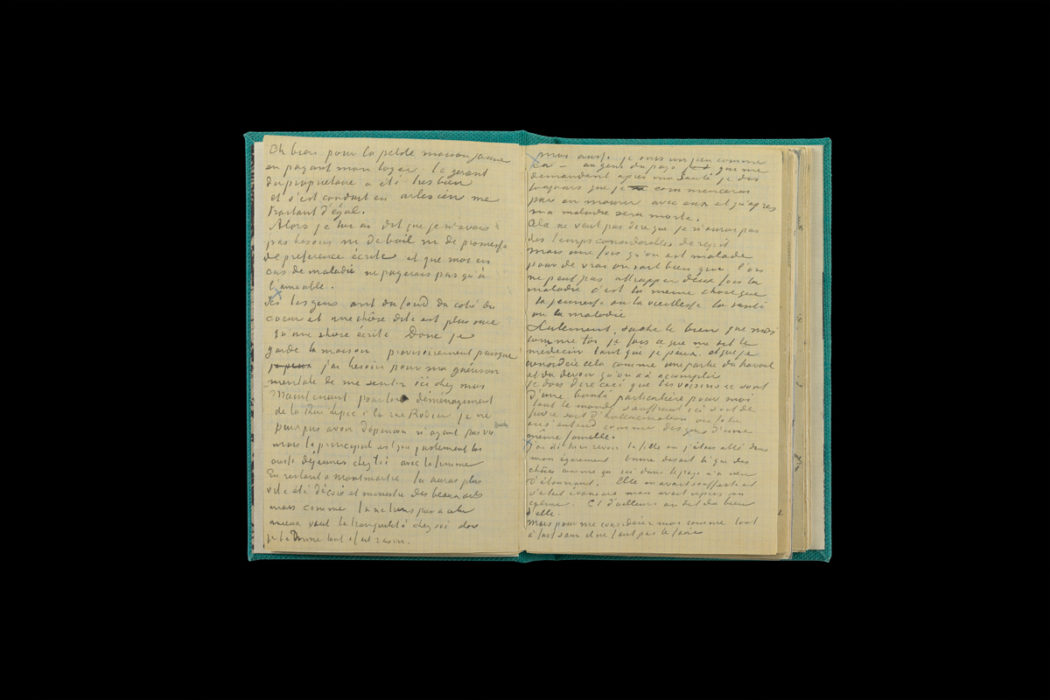 Eh bien pour la petite maison jaune
en payant mon loyer le gérant
du propriétaire a été très bien
et s'est conduit en arlesien me
traitant d'égal.
Alors je lui ai dit que je n'avais
pas besoin ni de bail ni de promesse
de preference écrite et que moi en
cas de maladie ne payerais pas qu'à
l'amiable.
Ici les gens ont du fond du coté du
coeur et une chose dite est plus sure
qu'une chose écrite Donc je
garde la maison provisoirement puisque
j'ai besoin pour ma guérison
mentale de me sentir ici chez moi
Maintenant pour ton déménagement
de la Rue Lepic à la rue Rodier je ne
puis pas avoir d'opinion n'ayant pas vu
mais le principal est que justement toi
aussi déjeunes chez toi avec ta femme
En restant à Montmartre tu aurais plus
vite été décoré et ministre des beaux arts
mais comme tu ne tiens pas à cela
mieux vaut la tranquillité chez soi donc
je te donne tout à fait raison.
moi aussi je suis un peu comme
ça – aux gens du pays qui me
demandent après ma santé je dis
toujours que je commencerai
par en mourir avec eux et qu'après
ma maladie sera morte.
Cela ne veut pas dire que je n'aurai pas
des temps considerables de répit
mais une fois qu'on est malade
pour de vrai on sait bien que l'on
ne peut pas attrapper deux fois la
maladie c'est la même chose que
la jeunesse ou la vieillesse la santé
ou la maladie
Seulement, sache le bien que moi
comme toi je fais ce que me dit le
médecin tant que je peux et que je
considère cela comme une partie du travail
et du devoir qu'on a à accomplir
je dois dire ceci que les voisins &c sont
d'une bonté particulière pour moi
tout le monde souffrant ici soit de
fièvre soit d'hallucination ou folie
on s'entend comme des gens d'une
même famille.
J'ai été hier revoir la fille où j'étais allé dans
mon égarement on me disait là que des
choses comme ça ici dans le pays n'a rien
d'étonnant. Elle en avait souffert et
s'était évanouie mais avait repris son
calme. Et d'ailleurs on dit du bien
d'elle.
mais pour me considérer moi comme tout
à fait sain il ne faut pas le faire